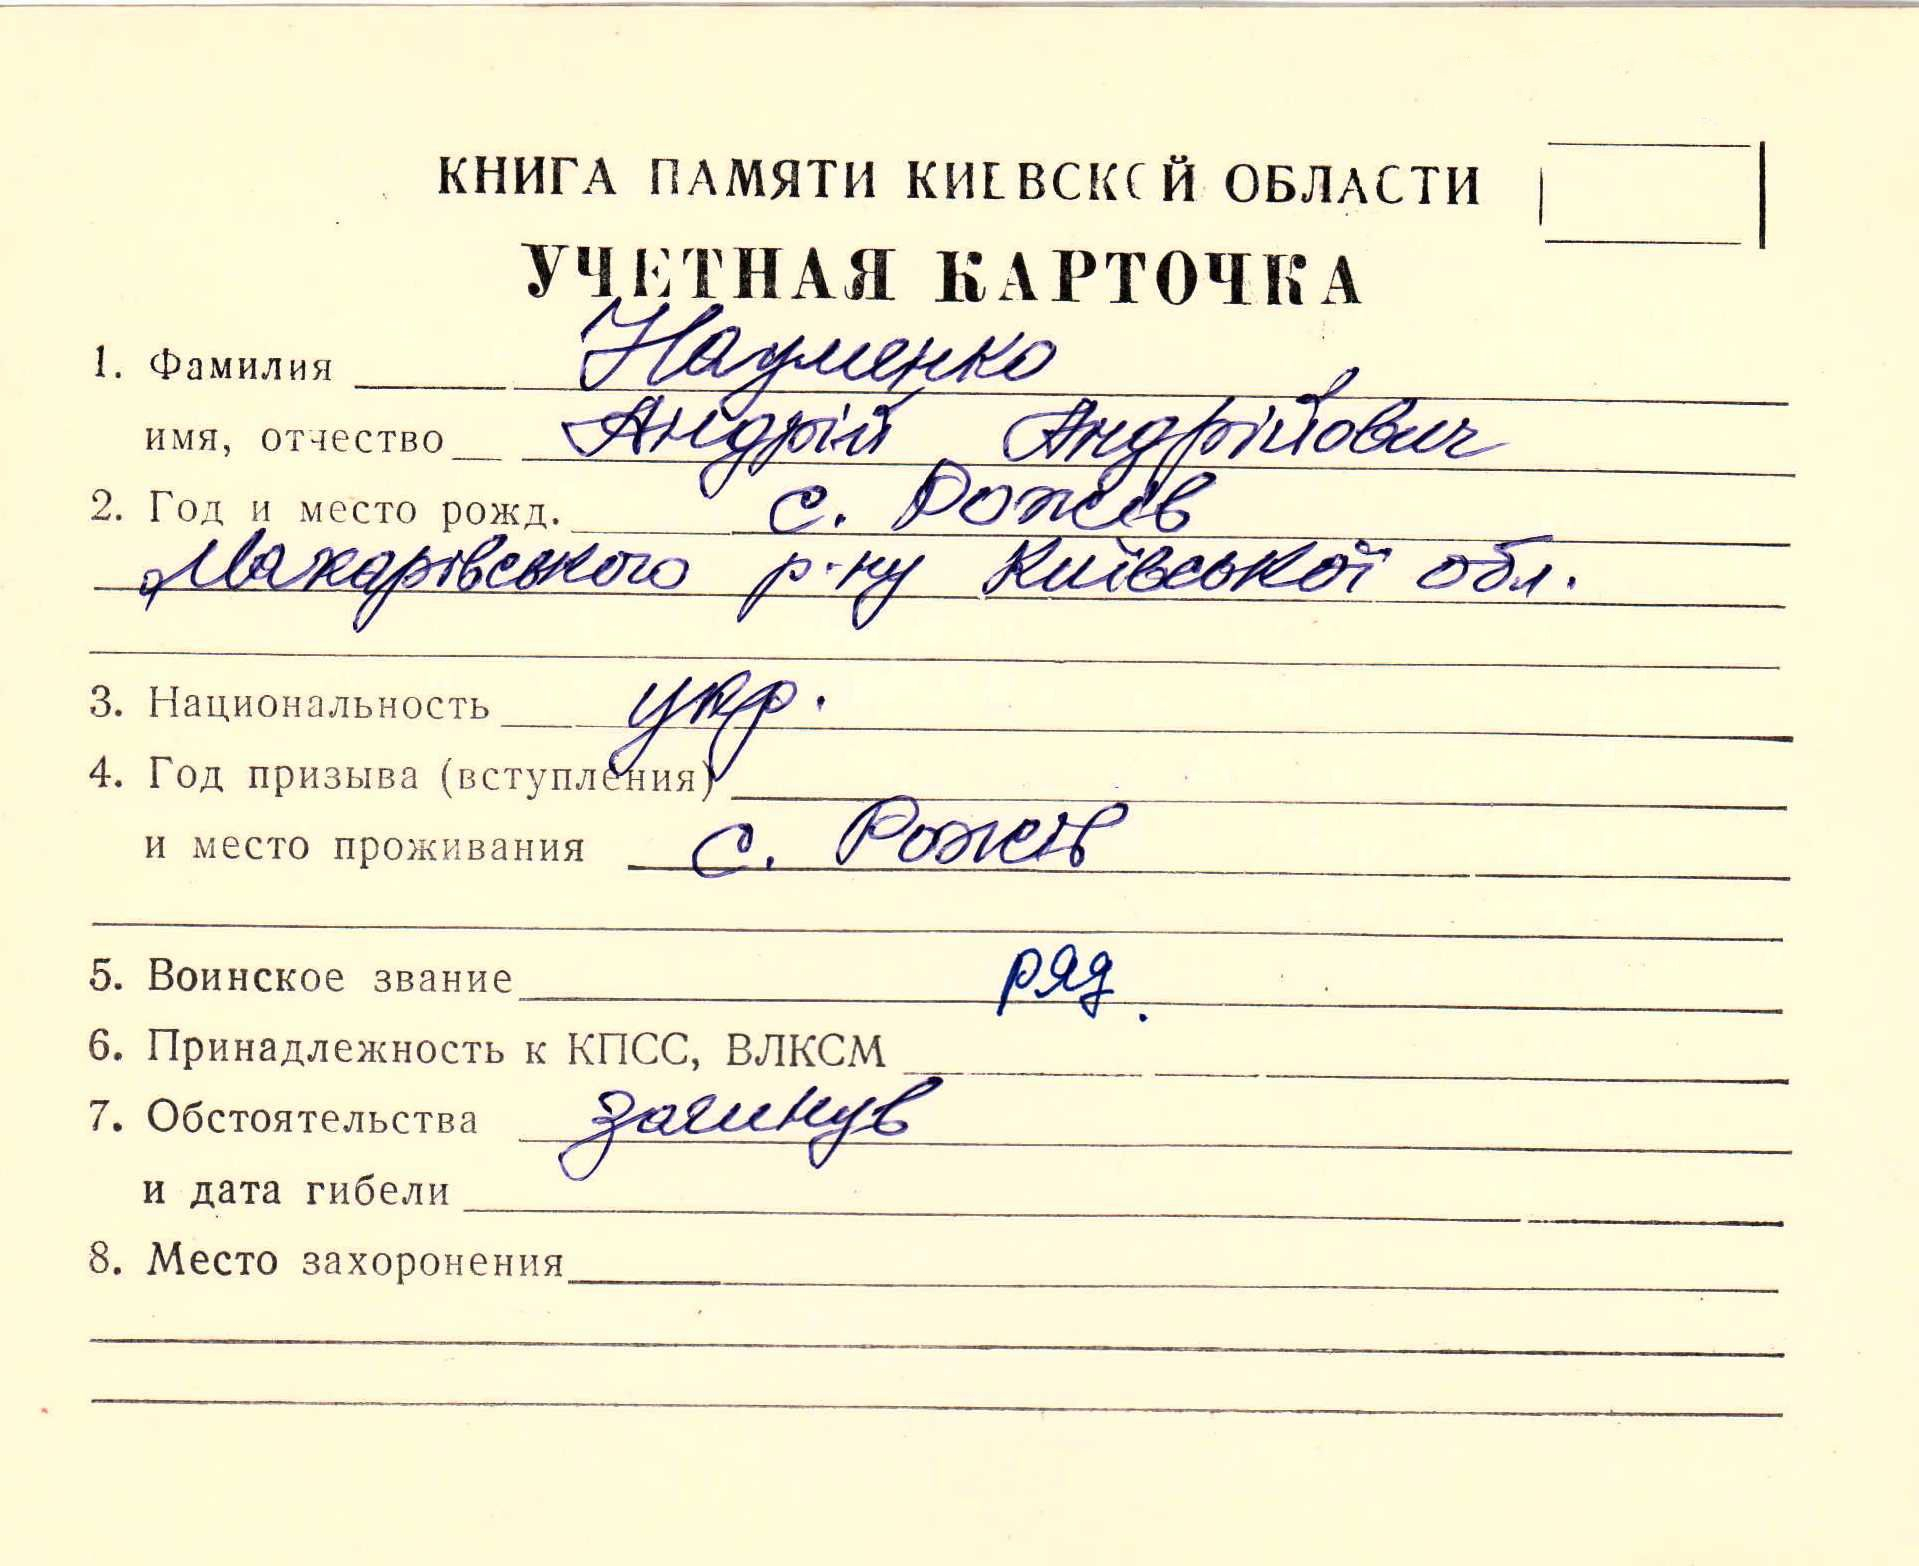 КНИГА ПАМЯТИ КИЕВСКОЙ ОБЛАСТИ
УЧЕТНАЯ КАРТОЧКА
1. Фамилия Науменко
имя, отчество Андрій Андрійович
2. Год и место рожд. с. Рожів
Макарівського р-ну Київської обл.
3. Национальность укр.
4. Год призыва (вступления)
и место проживания с. Рожів
5. Воинское звание ряд.
6. Принадлежность к КПСС, ВЛКСМ
7. Обстоятельства загинув
и дата гибели
8. Место захоронения